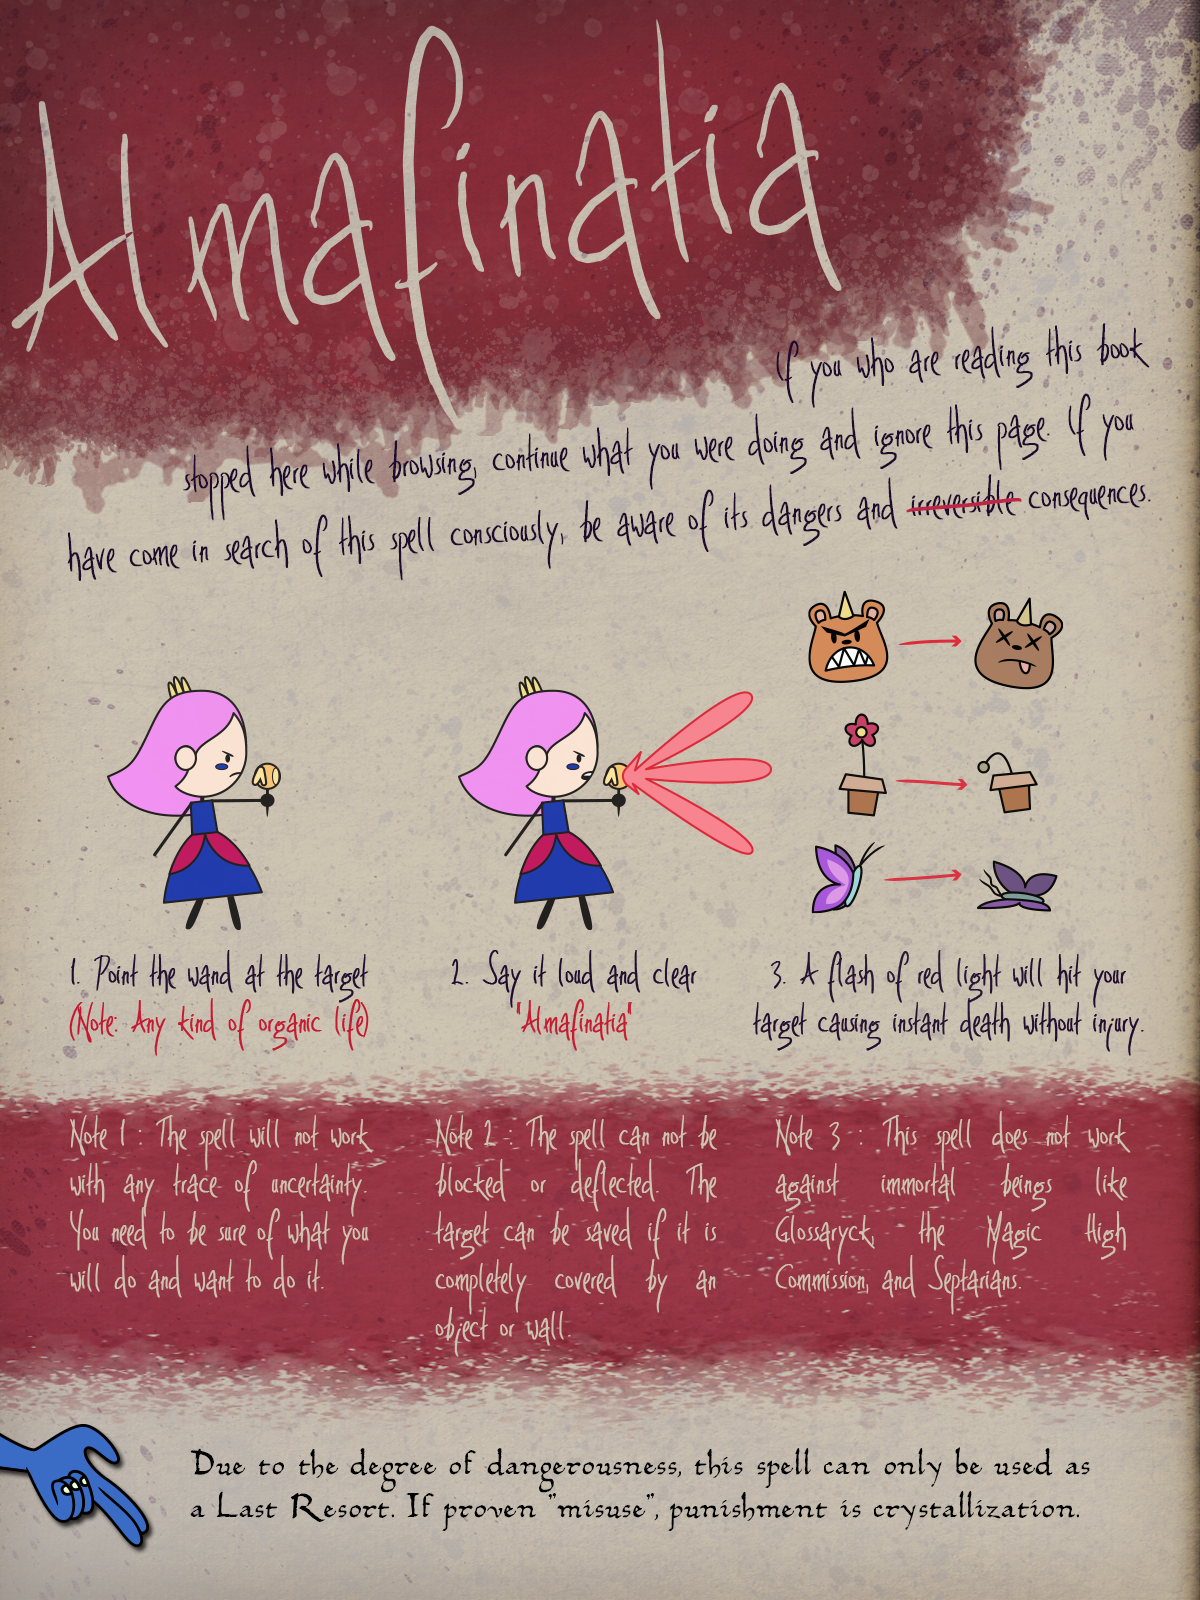 Almafinatia
If you who are reading this book
stopped here while browsing, continue what you were doing and ignore this page. If you
have come in search of this spell consciously, be aware of its dangers and irreversible consequences.
1. Point the wand at the target
(Note: Any kind of organic life)
2. Say it loud and clear
"Almafinatia"
3. A flash of red light will hit your
target causing instant death without injury.
Note 1 : The spell will not work
with any trace of uncertainty.
You need to be sure of what you
will do and want to do it.
Note 2 : The spell can not be
blocked or deflected. The
target can be saved if it is
completely covered by an
object or wall.
Note 3 : This spell does not work
against immortal beings like
Glossaryck, the Magic High
Commission, and Septarians.
Due to the degree of dangerousness, this spell can only be used as
a Last Resort. If proven "misuse", punishment is crystallization.